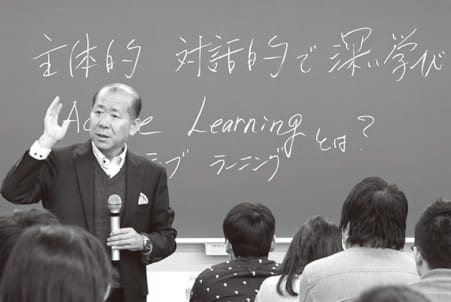 主体的 対話的で深い学び
Learning とは?
ラーニング